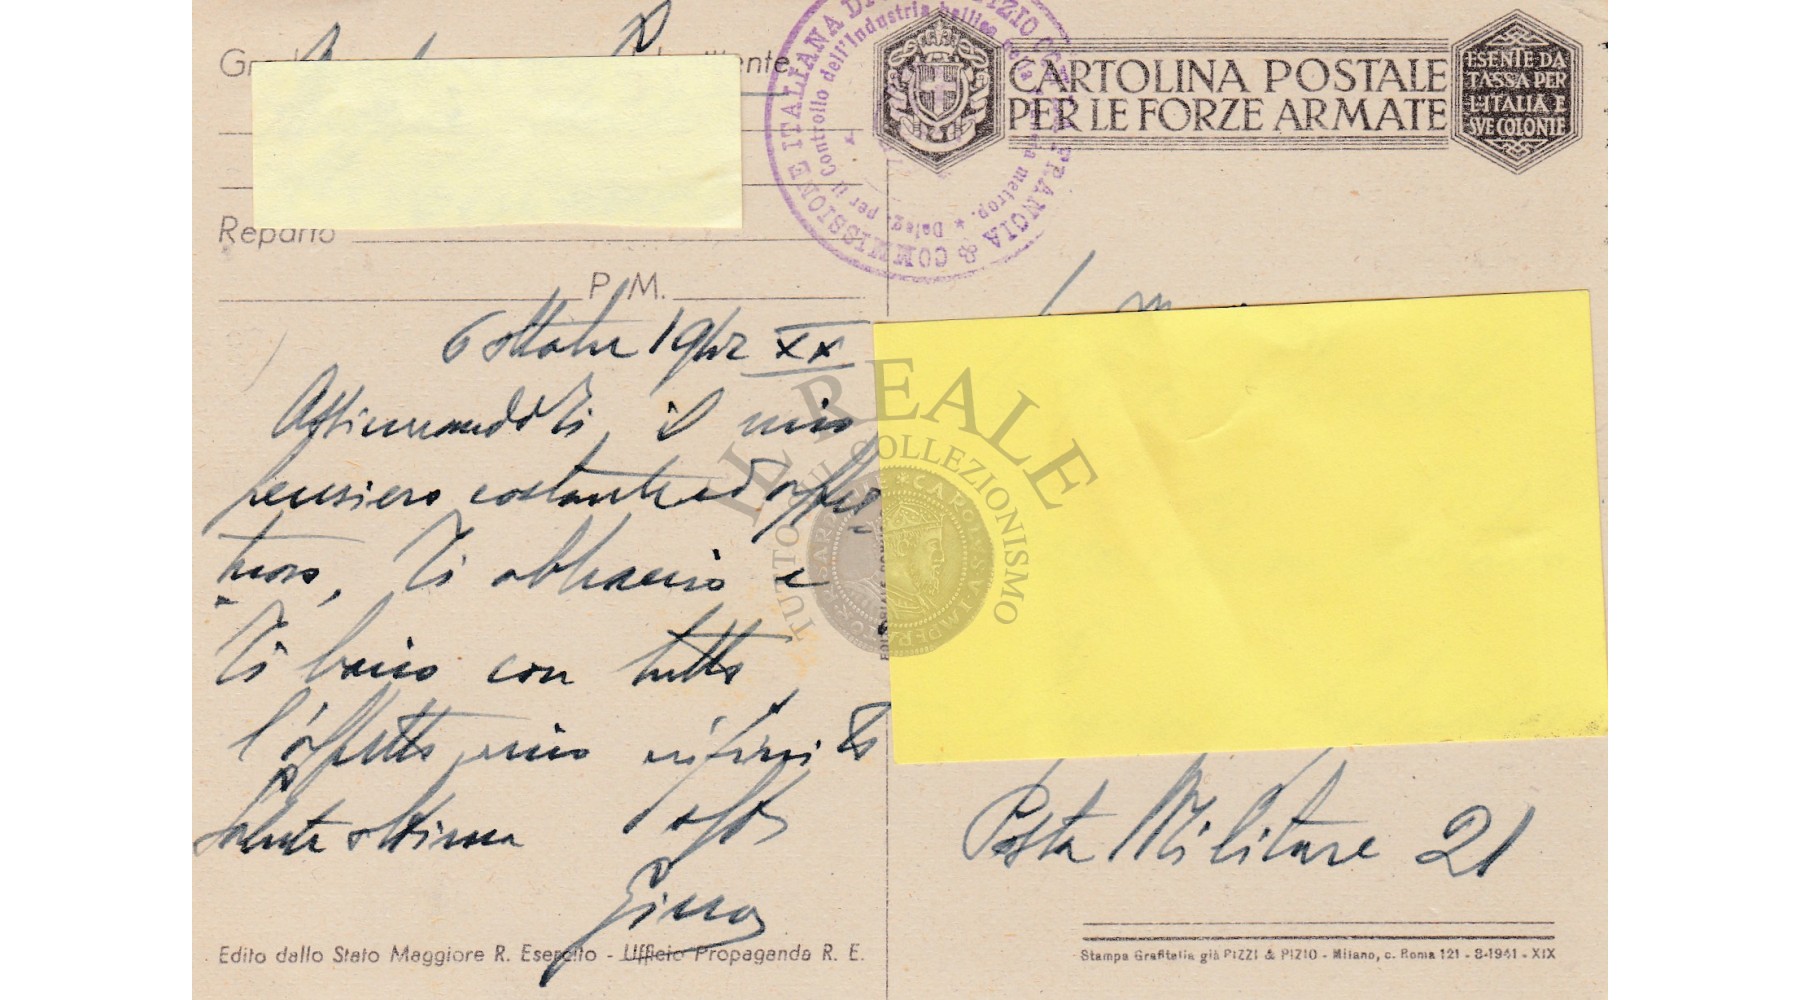 CARTOLINA POSTALE
PER LE FORZE ARMATE
ESENTE DA
TASSA PER
L'ITALIA E
SVE COLONIE
COMMISSIONE ITALIANA DI ARMISTIZIO CON LA FRANCIA
Deleg. per il Controllo dell'Industria bellica nella Francia metrop.
Reparto
P. M.
6 ottobre 1942 XX
Assicurandoti il mio
pensiero costante ed affet-
tuoso, Ti abbraccio e
Ti bacio con tutto
l'affetto mio infinito
Salute ottima
Posta Militare 21
Edito dallo Stato Maggiore R. Esercito - Ufficio Propaganda R. E.
Stampa Grafitalia già PIZZI & PIZIO - Milano, c. Roma 121 - 8-1941 - XIX
IL REALE
TUTTO SUL COLLEZIONISMO